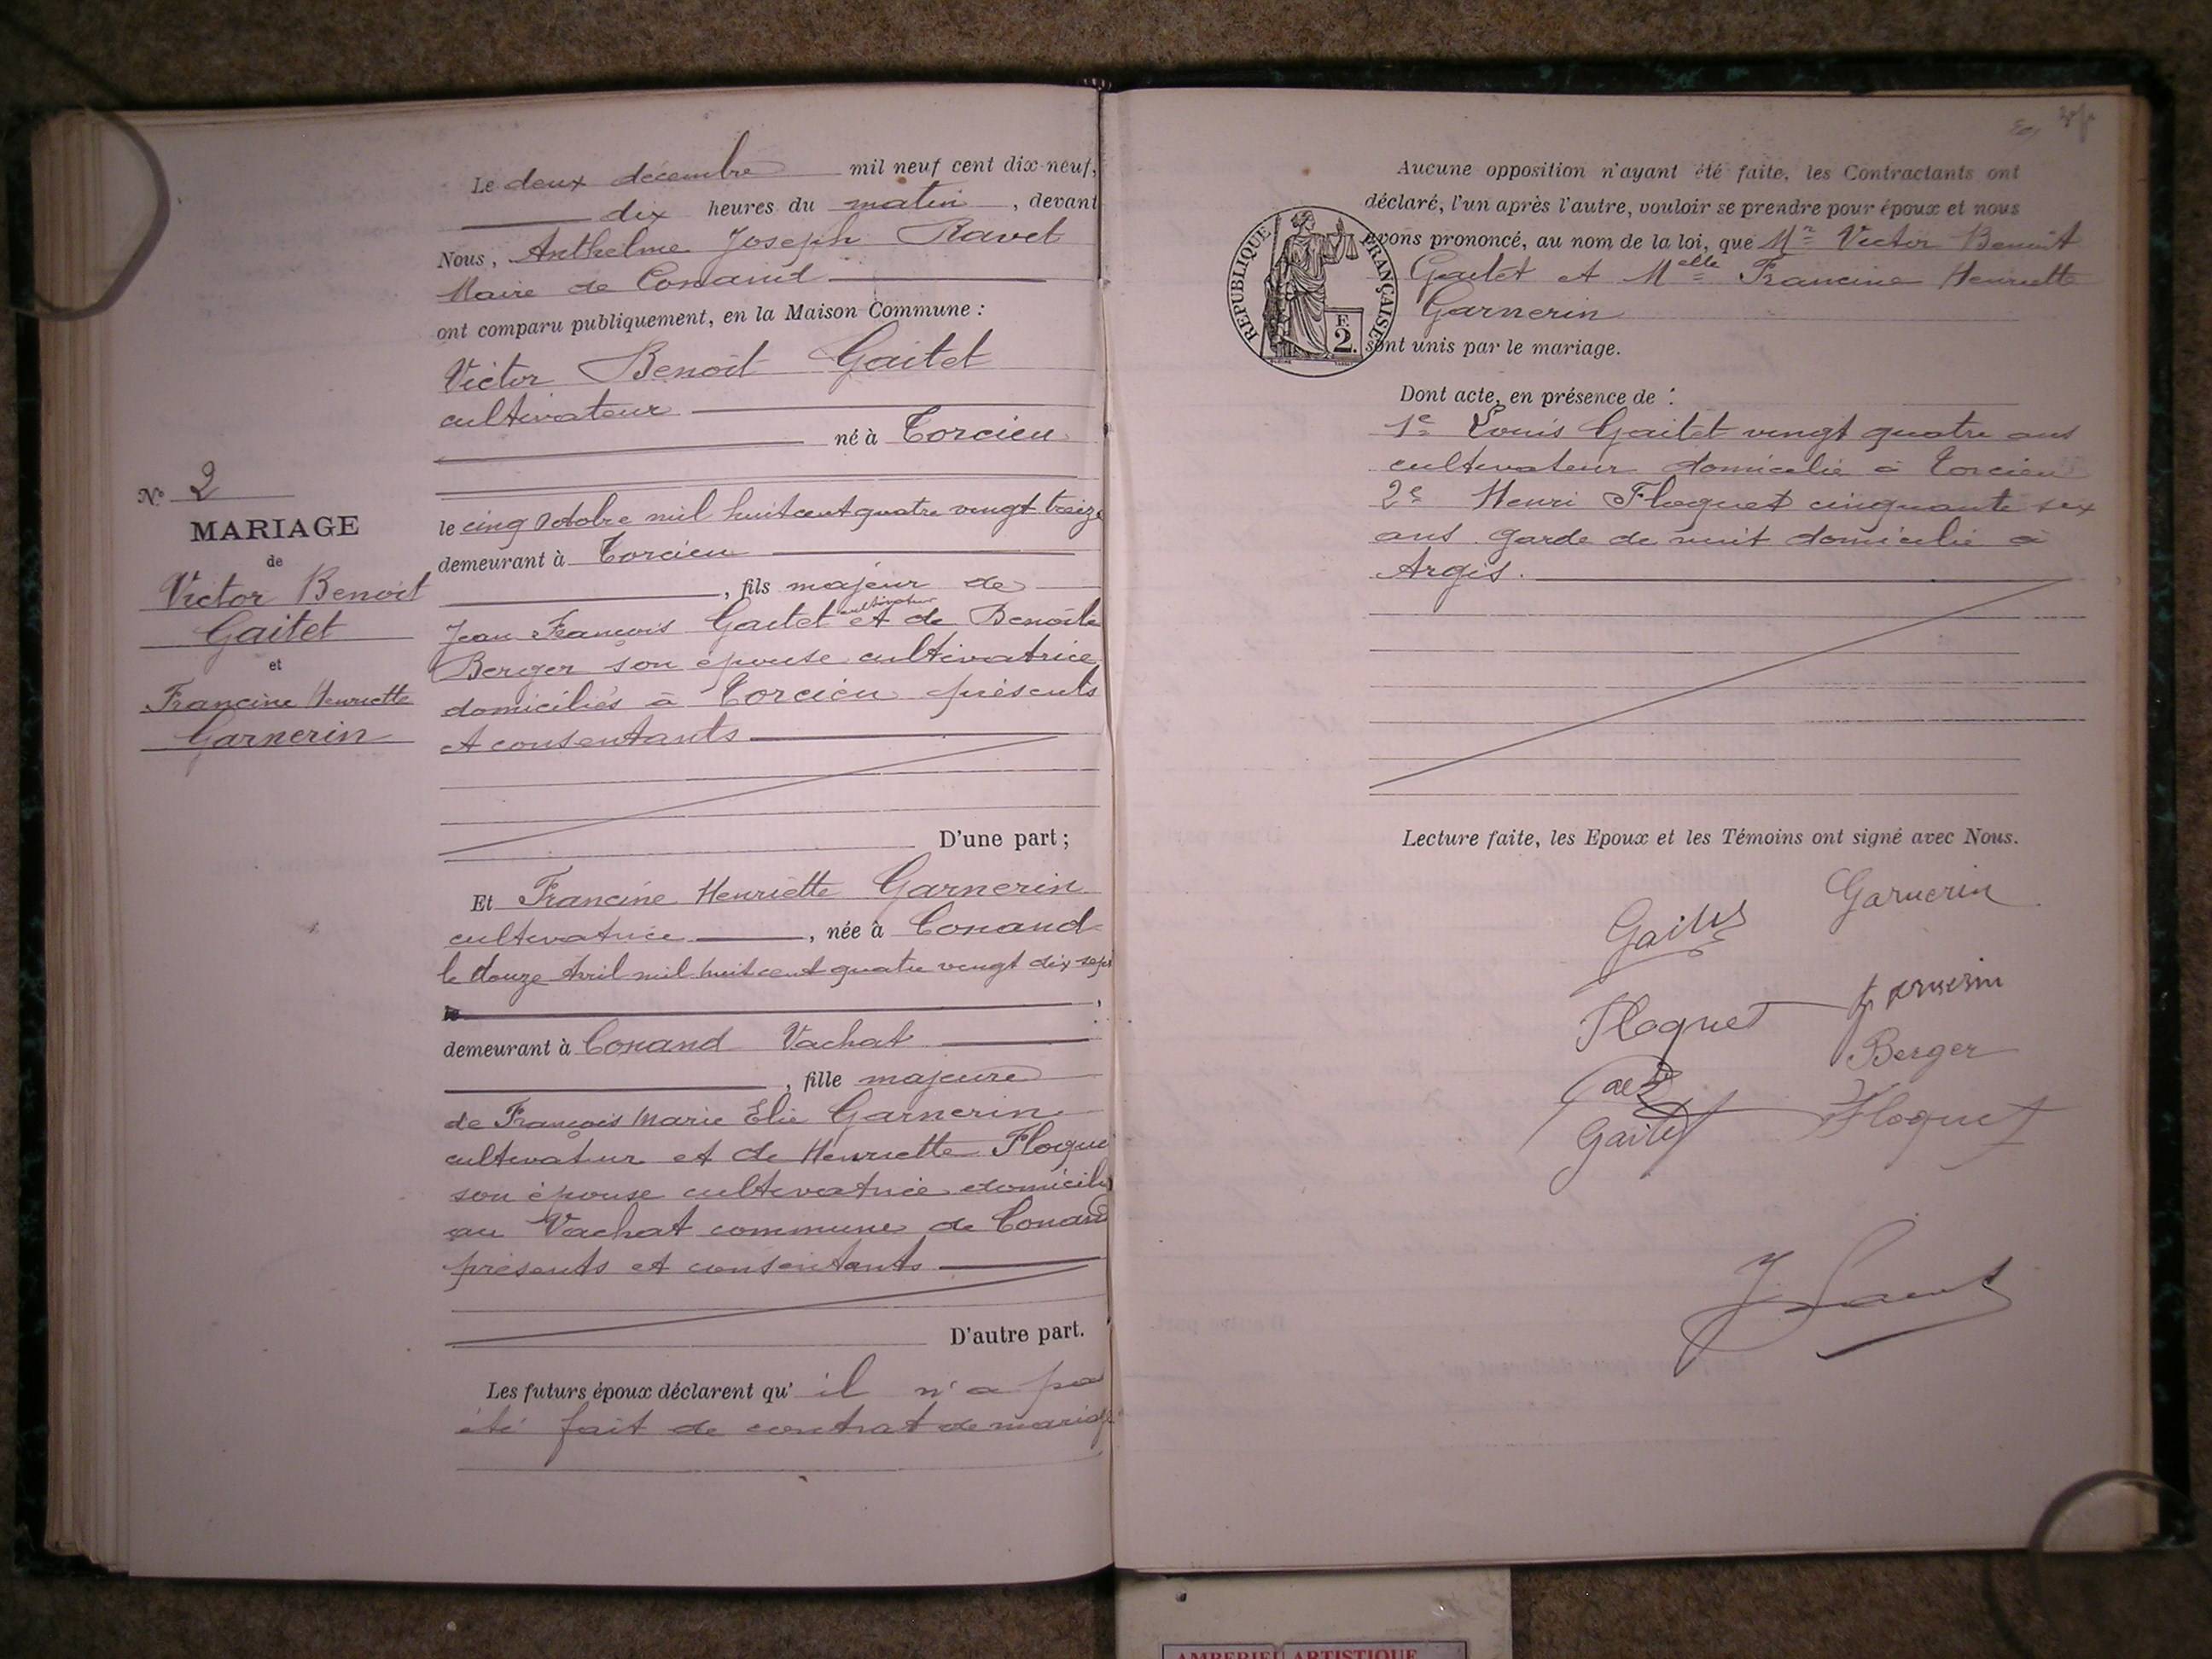 Le deux décembre mil neuf cent dix-neuf,
dix heures du matin, devant
Nous, Anthelme Joseph Ravet
Maire de Conand
ont comparu publiquement, en la Maison Commune :
Victor Benoit Gaitet
cultivateur
né à Torcieu
le cinq octobre mil huit cent quatre vingt treize
demeurant à Torcieu
, fils majeur de
Jean François Gaitet cultivateur et de Benoîte
Berger son épouse cultivatrice
domiciliés à Torcieu présents
et consentants
D'une part ;
Et Francine Henriette Garnerin
cultivatrice, née à Conand
le douze Avril mil huit cent quatre vingt dix sept
le
demeurant à Conand Vachat
, fille majeure
de François Marie Elie Garnerin
cultivateur et de Henriette Floque
son épouse cultivatrice domiciliés
au Vachat commune de Conand
présents et consentants
D'autre part.
Les futurs époux déclarent qu'il n'a pa
été fait de contrat de mariage
N° 2
MARIAGE
de
Victor Benoit
Gaitet
et
Francine Henriette
Garnerin
Aucune opposition n'ayant été faite, les Contractants ont
déclaré, l'un après l'autre, vouloir se prendre pour époux et nous
avons prononcé, au nom de la loi, que Mr Victor Benoit
Gaitet et Melle Francine Henriette
Garnerin
sont unis par le mariage.
RÉPUBLIQUE FRANÇAISE
F.
2.
Dont acte, en présence de :
1e Louis Gaitet vingt quatre ans
cultivateur domicilié à Torcieu
2e Henri Floquet cinquante six
ans garde de nuit domicilié à
Argis.
Lecture faite, les Epoux et les Témoins ont signé avec Nous.
Garnerin
Gaitet
Floquet garnerin
Berger
Gaitet Floquet
AMBERIEU ARTISTIQUE